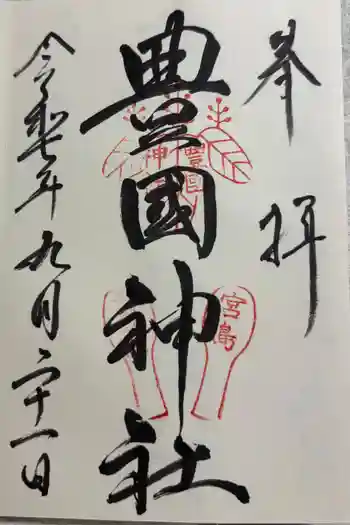 奉拝
豊國神社
豊国神社
宮島
令和七年九月二十一日